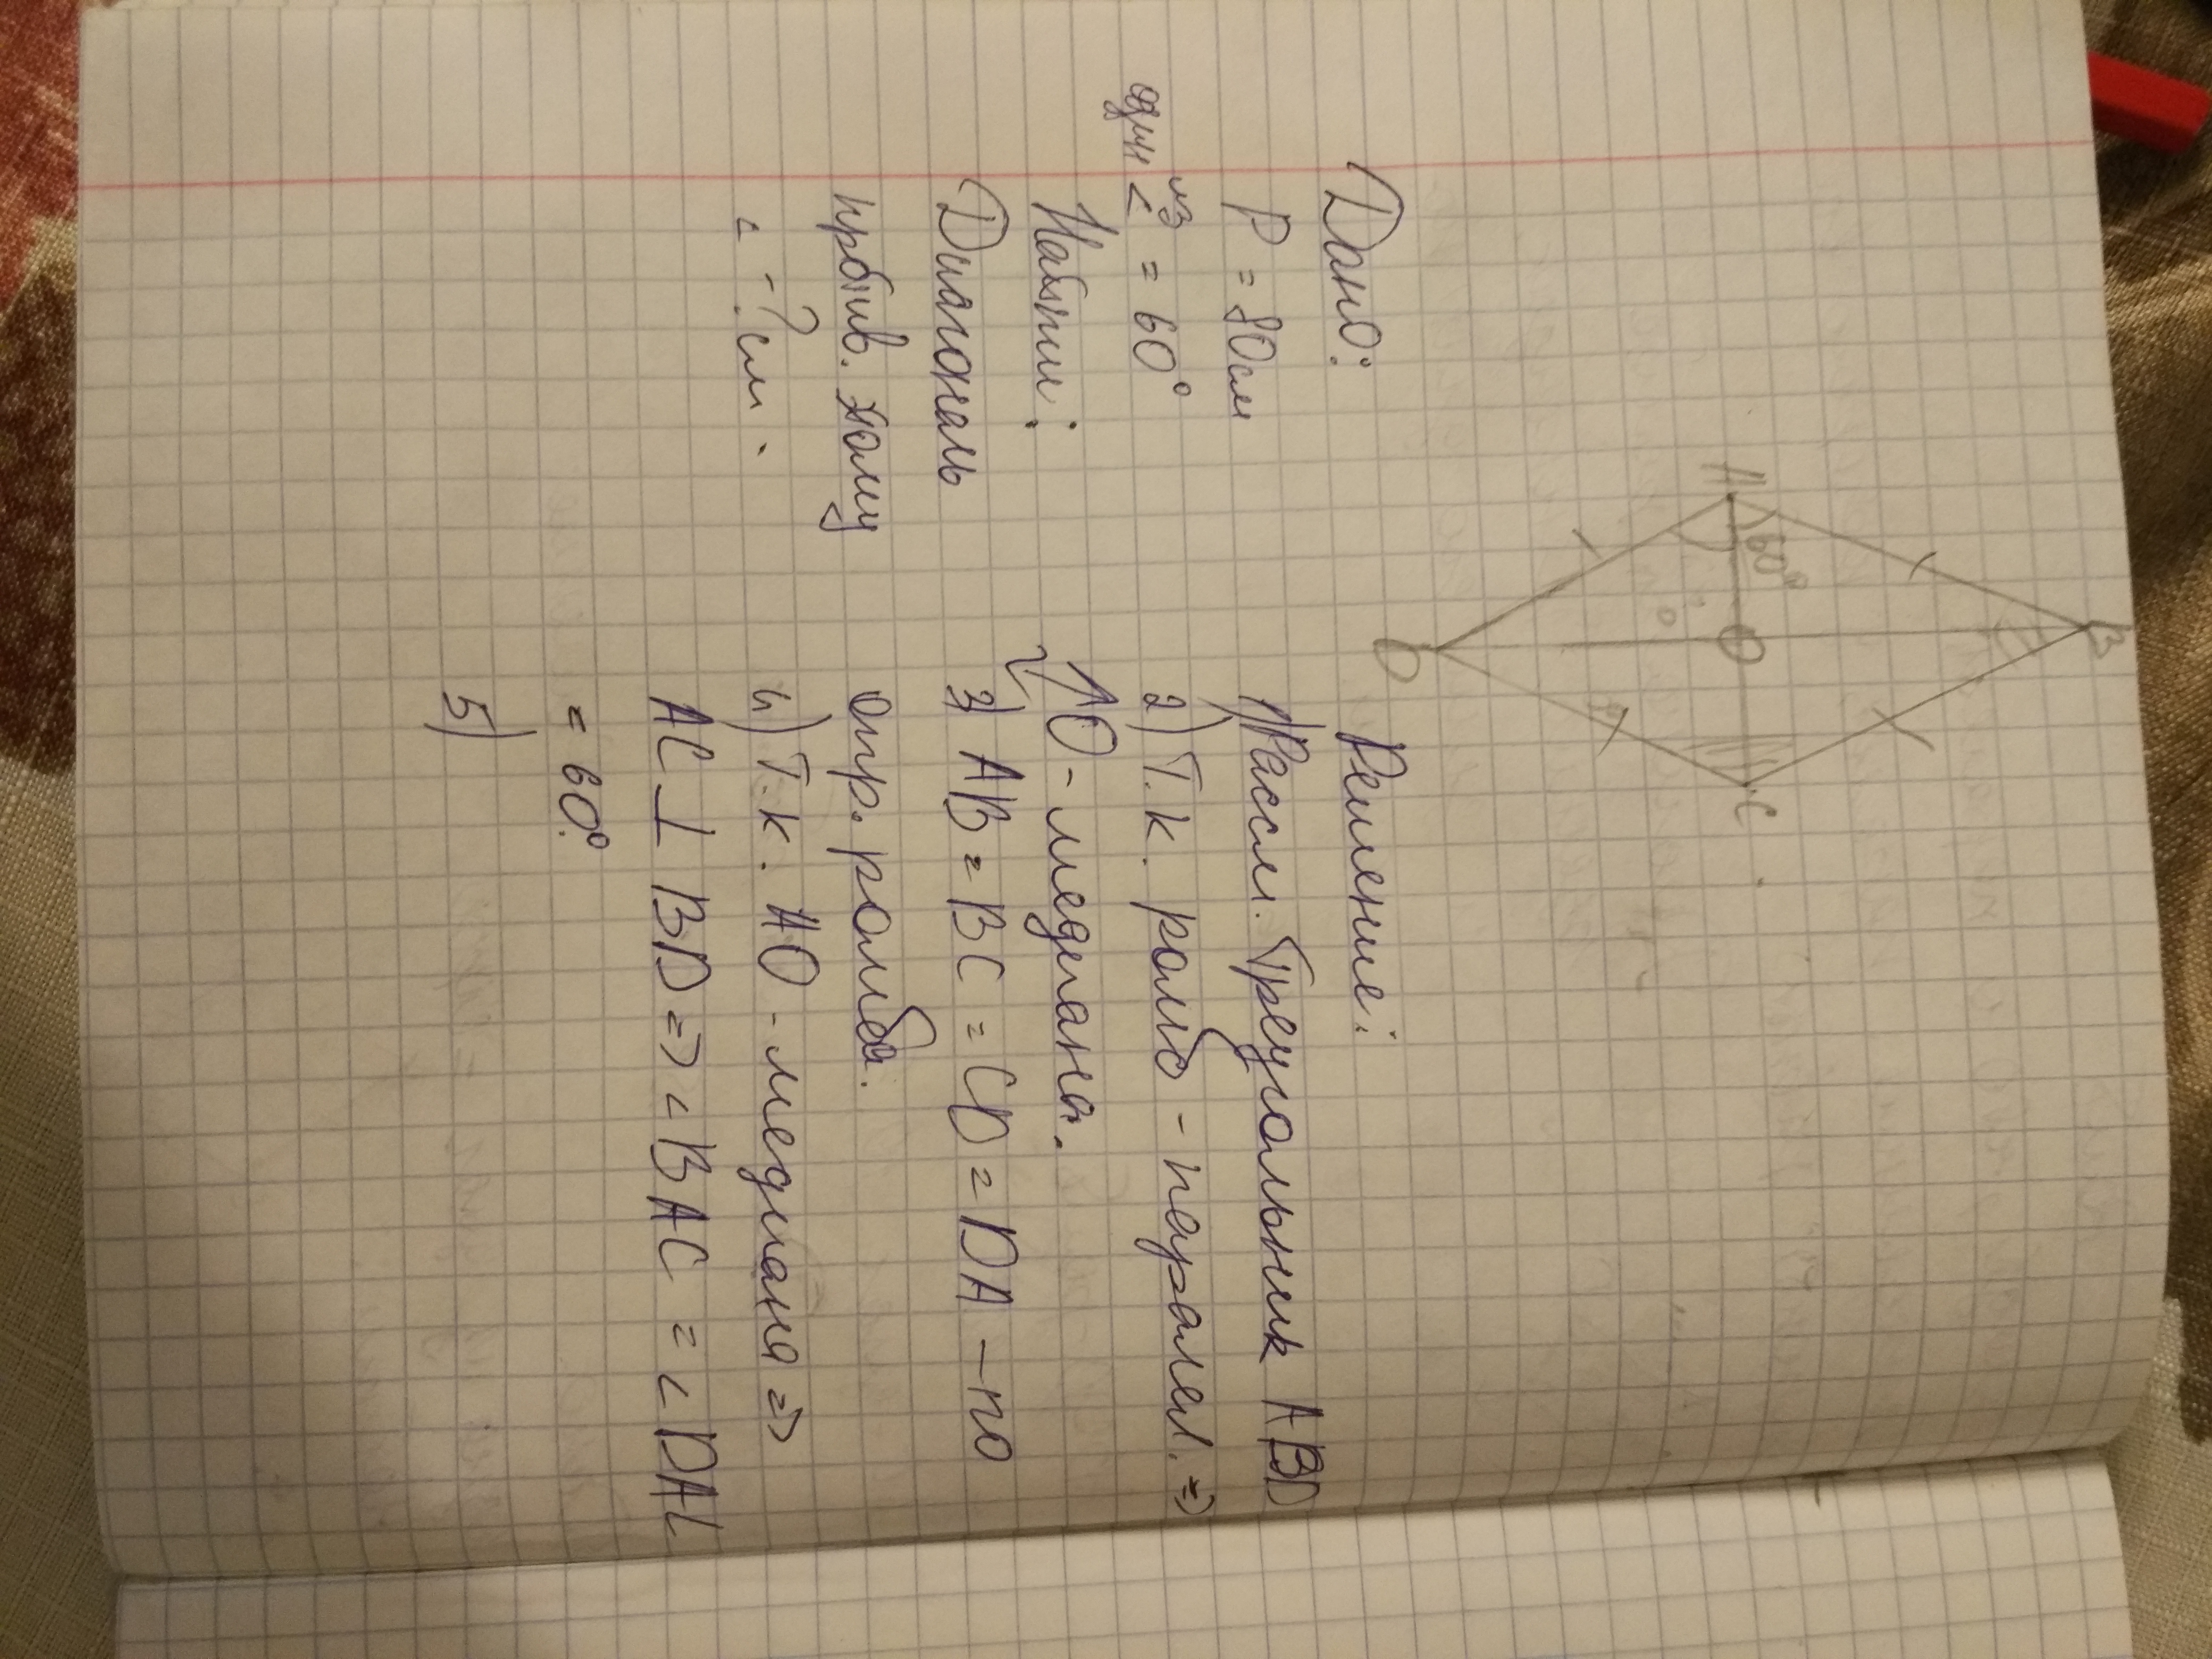 A
B
C
D
O
60°
Дано:
P = 80см
один из < = 60°
Найти:
Диагональ
против. этому
< - ? см.
Решение:
1) Рассм. треугольник ABD
2) Т.к. ромб - паралел. =>
AO - медиана.
3) AB = BC = CD = DA - по
опр. ромба.
4) Т.к. AO - медиана =>
AC ⊥ BD => < BAC = < DAC
= 60°.
5)